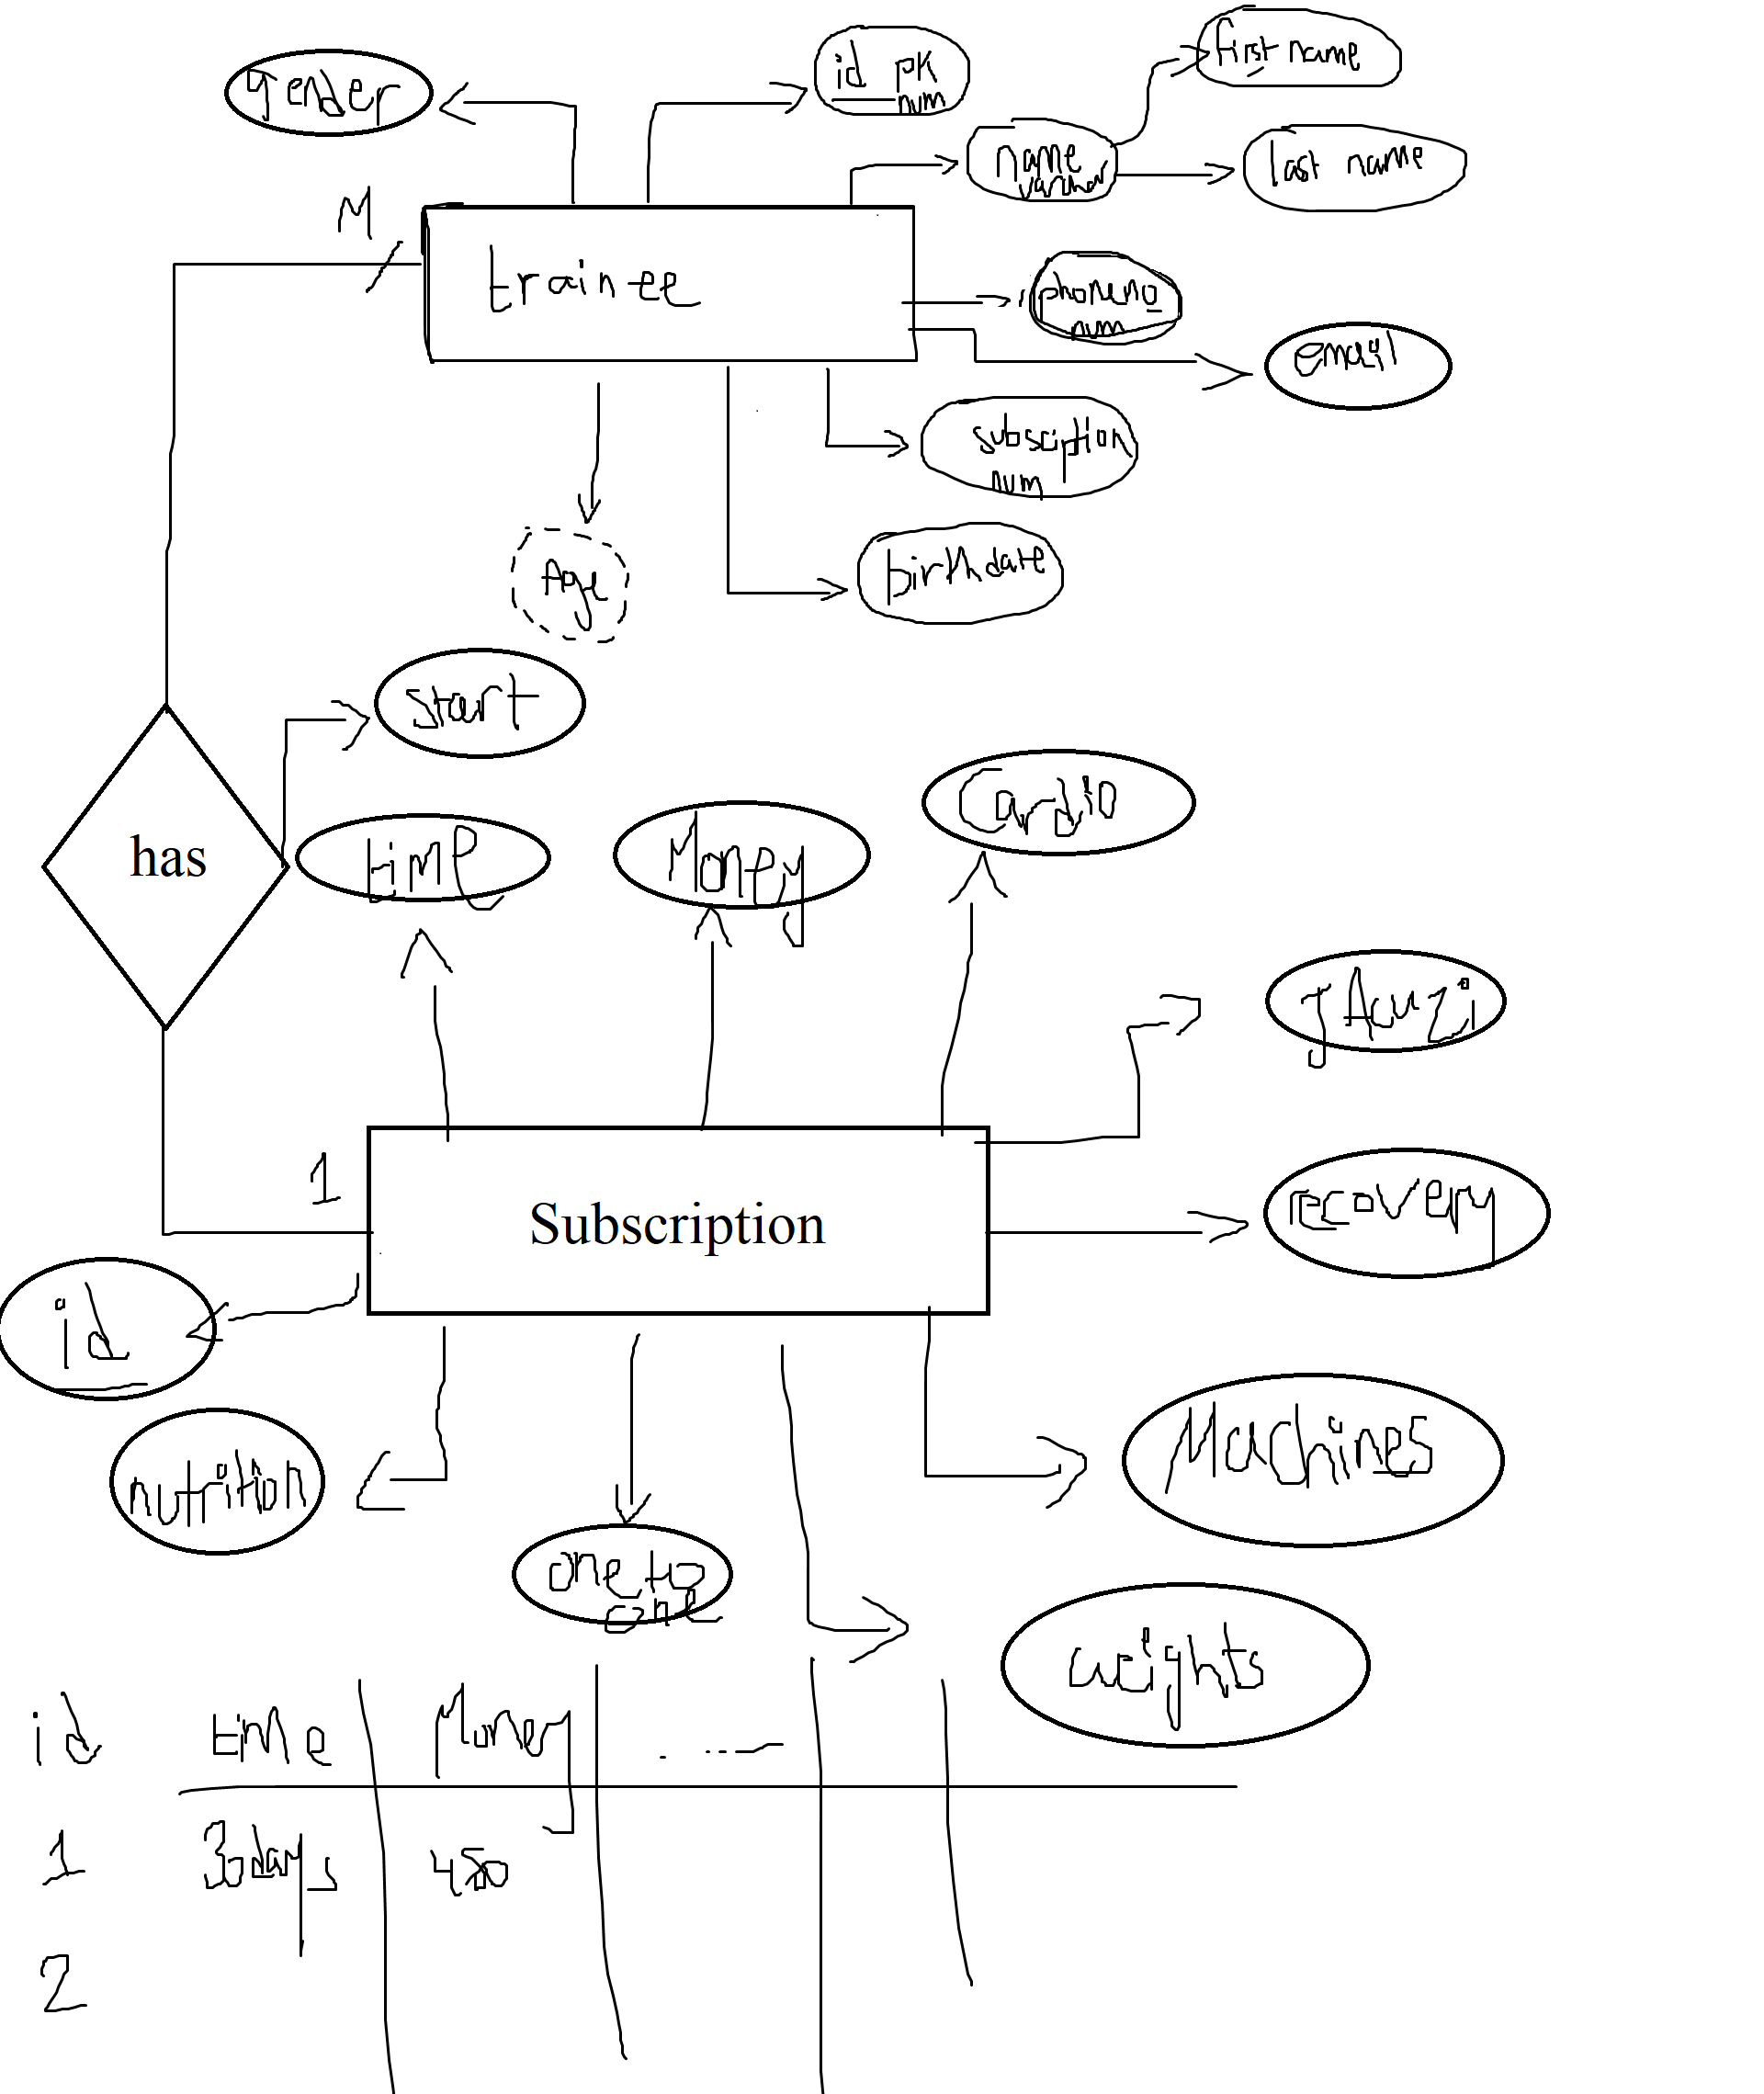 gender
id pk
num
first name
name
varchar
last name
M
trainee
phoneno
num
email
subsciption
num
Age
birthdate
start
has
time
Money
Cardio
JAcuzi
1
Subscription
recovery
id
nutrition
Machines
one to
one
weights
id time Money . .----
1 30days 450
2